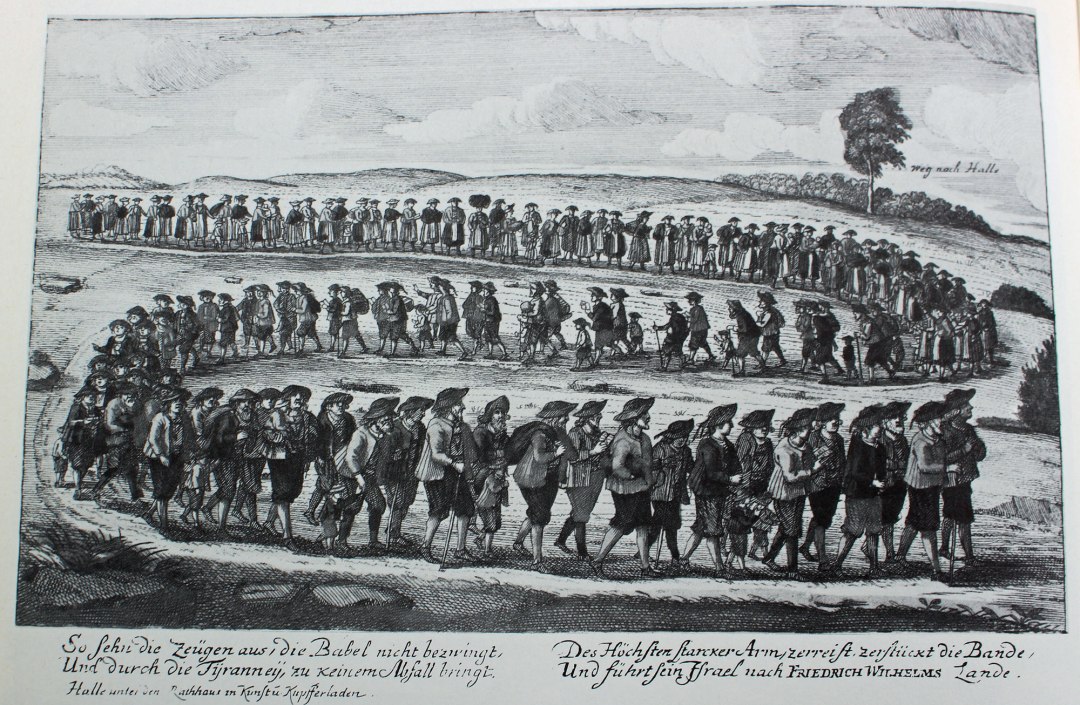 weg nach Halle
So sehn die Zeügen aus, die Babel nicht bezwingt,
Und durch die Tÿranneÿ, zu keinem Abfall bringt.
Halle unter den Rathhaus in Kunst u. Kupfferladen.
Des Höchsten starcker Arm, zerreist zerstückt die Bande,
Und führt sein Israel nach FRIEDRICH WILHELMS Lande.